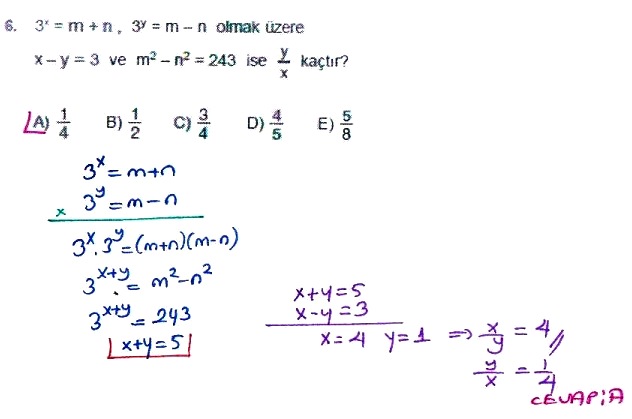 6. 3ˣ = m + n , 3ʸ = m – n olmak üzere
x – y = 3 ve m² – n² = 243 ise y/x kaçtır?
A) 1/4 B) 1/2 C) 3/4 D) 4/5 E) 5/8
3ˣ = m+n
x 3ʸ = m–n
3ˣ.3ʸ = (m+n)(m-n)
3ˣ⁺ʸ = m²–n²
3ˣ⁺ʸ = 243
x+y = 5
x+y=5
x-y=3
x=4 y=1 ⇒ x/y = 4//
y/x = 1/4
CEVAP:A